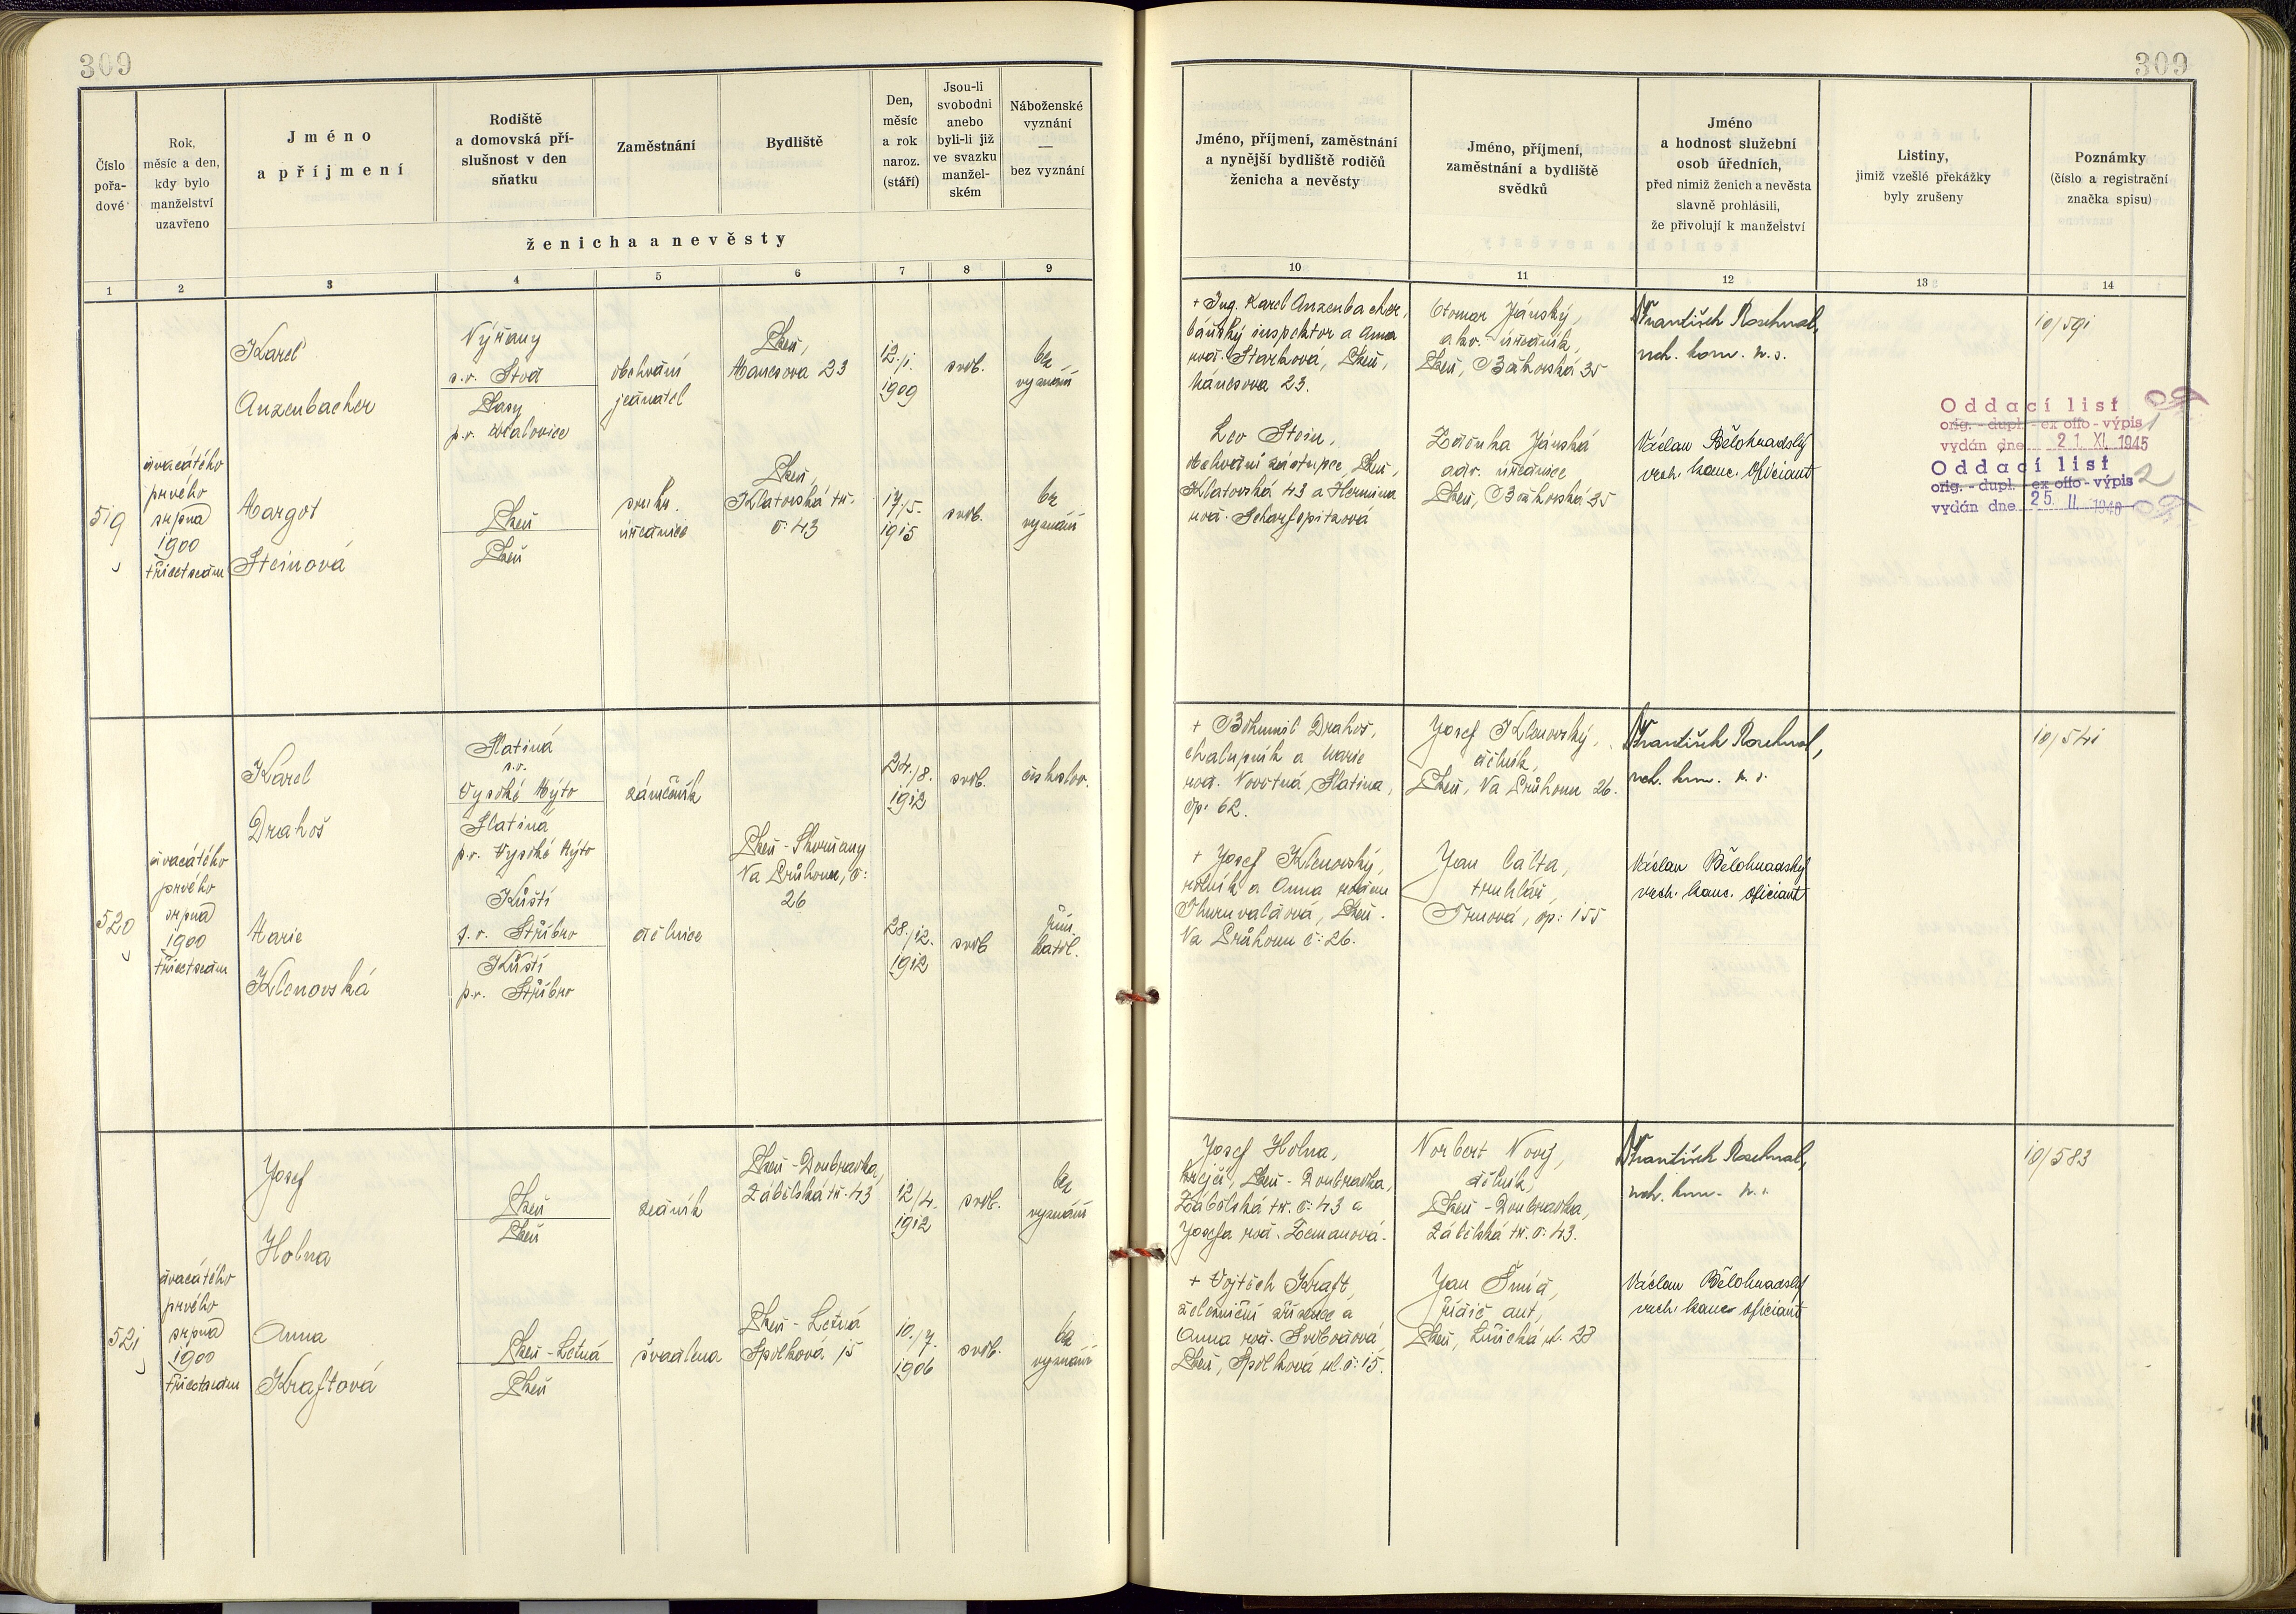 309
309
Číslo
pořa-
dové
Rok,
měsíc a den,
kdy bylo
manželství
uzavřeno
Jméno
a příjmení
Rodiště
a domovská pří-
slušnost v den
sňatku
Zaměstnání
Bydliště
Den,
měsíc
a rok
naroz.
(stáří)
Jsou-li
svobodni
anebo
byli-li již
ve svazku
manžel-
ském
Náboženské
vyznání
—
bez vyznání
ženicha a nevěsty
Jméno, příjmení, zaměstnání
a nynější bydliště rodičů
ženicha a nevěsty
Jméno, příjmení,
zaměstnání a bydliště
svědků
Jméno
a hodnost služební
osob úředních,
před nimiž ženich a nevěsta
slavně prohlásili,
že přivolují k manželství
Listiny,
jimiž vzešlé překážky
byly zrušeny
Poznámky
(číslo a registrační
značka spisu)
1 2 3 4 5 6 7 8 9 10 11 12 13 14
519
dvacátého
prvého
srpna
1900
třicetsedm
Karel
Anzenbacher
Nýřany
s.o. Stod
Plasy
p.o. Kralovice
obchodní
jednatel
Plzeň,
Mánesova 23
12./1.
1909
svob.
bez
vyznání
Margot
Steinová
Plzeň
Plzeň
soukr.
úřednice
Plzeň,
Klatovská tř.
č. 43
17./5.
1915
svob.
bez
vyznání
+ Ing. Karel Anzenbacher,
báňský inspektor a Anna
rod. Starková, Plzeň,
Mánesova 23.
Leo Stein,
obchodní zástupce, Plzeň,
Klatovská 43 a Hermina
rod. Scharfspitzová
Otomar Jánský,
úředník,
Plzeň, 35
Zdeňka Jánská
úřednice
Plzeň, 35
František
vrch. kom. v. s.
Václav Bělohradský
vrch. kanc. oficiant
10/591
Oddací list
orig. - dupl. - ex offo - výpis
vydán dne 21. XI. 1945
Oddací list
orig. - dupl. - ex offo - výpis
vydán dne 25. II. 1946
520
dvacátého
prvého
srpna
1900
třicetsedm
Karel
Drahoš
Slatina
s.o.
Vysoké Mýto
Slatina
p.o. Vysoké Mýto
zámečník
24./8.
1912
svob.
českoslov.
Plzeň-Skvrňany
Na Průhonu, č.
26
Marie
Klenovská
Kšští
s.o. Stříbro
Kšští
p.o. Stříbro
dělnice
28./12.
1912
svob
řím.
katol.
+ Bohumil Drahoš,
chalupník a Marie
rod. Novotná, Slatina,
čp. 62.
+ Josef Klenovský,
rolník a Anna rozená
Plzeň.
Na Průhonu č. 26.
Josef Klenovský,
dělník,
Plzeň, Na Průhonu 26.
Jan Calta,
truhlář,
Trnová, čp. 155
František
vrch. kom. v. s.
Václav Bělohradský
vrch. kanc. oficiant
10/541
521
dvacátého
prvého
srpna
1900
třicetsedm
Josef
Holna
Plzeň
Plzeň
zedník
Plzeň-Doubravka,
Zábělská tř. 43
12/4.
1912
svob.
bez
vyznání
Anna
Kraftová
Plzeň-Letná
Plzeň
švadlena
Plzeň-Letná
Spolková 15
10./7.
1906
svob.
bez
vyznání
Josef Holna,
krejčí, Plzeň-Doubravka,
Zábělská tř. č. 43 a
Josefa rod. Zemanová.
+ Vojtěch Kraft,
železniční zřízenec a
Anna rod. Svobodová
Plzeň, Spolková ul. č. 15.
Norbert Nový,
dělník,
Plzeň-Doubravka,
Zábělská tř. č. 43.
Jan Šmíd,
řidič aut,
Plzeň, ul. 28
František
vrch. kom. v. s.
Václav Bělohradský
vrch. kanc. oficiant
10/583